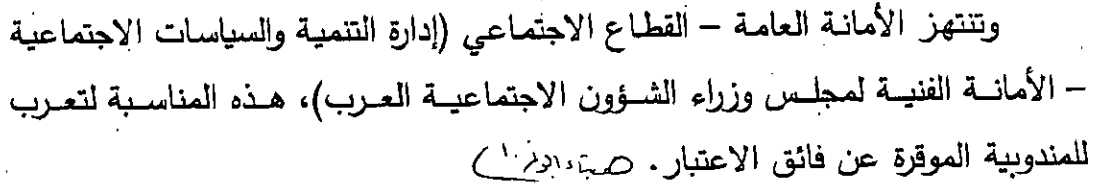 وتنتهز الأمانة العامة – القطاع الاجتماعي (إدارة التنمية والسياسات الاجتماعية
– الأمانة الفنية لمجلس وزراء الشؤون الاجتماعية العرب)، هذه المناسبة لتعرب
للمندوبية الموقرة عن فائق الاعتبار.